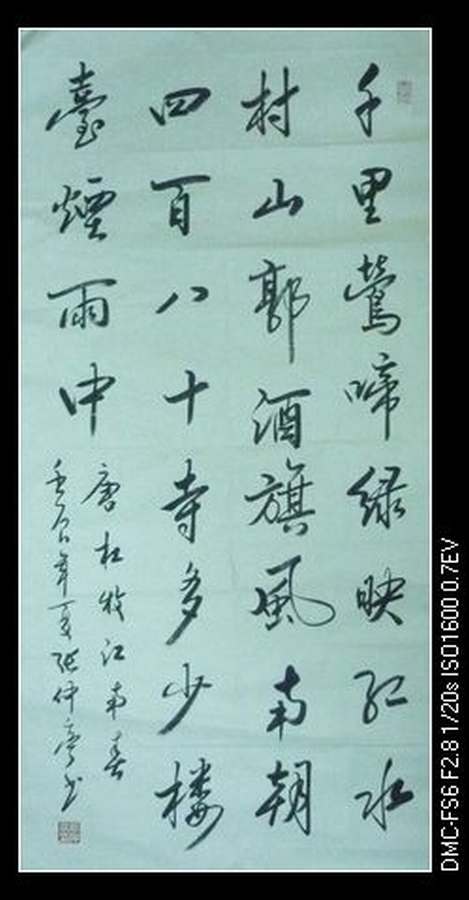 千里鶯啼绿映红水
村山郭酒旗風南朝
四百八十寺多少楼
臺煙雨中
唐杜牧江南春
年夏张仲亭书
DMC-FS6 F2.8 1/20s ISO1600 0.7EV